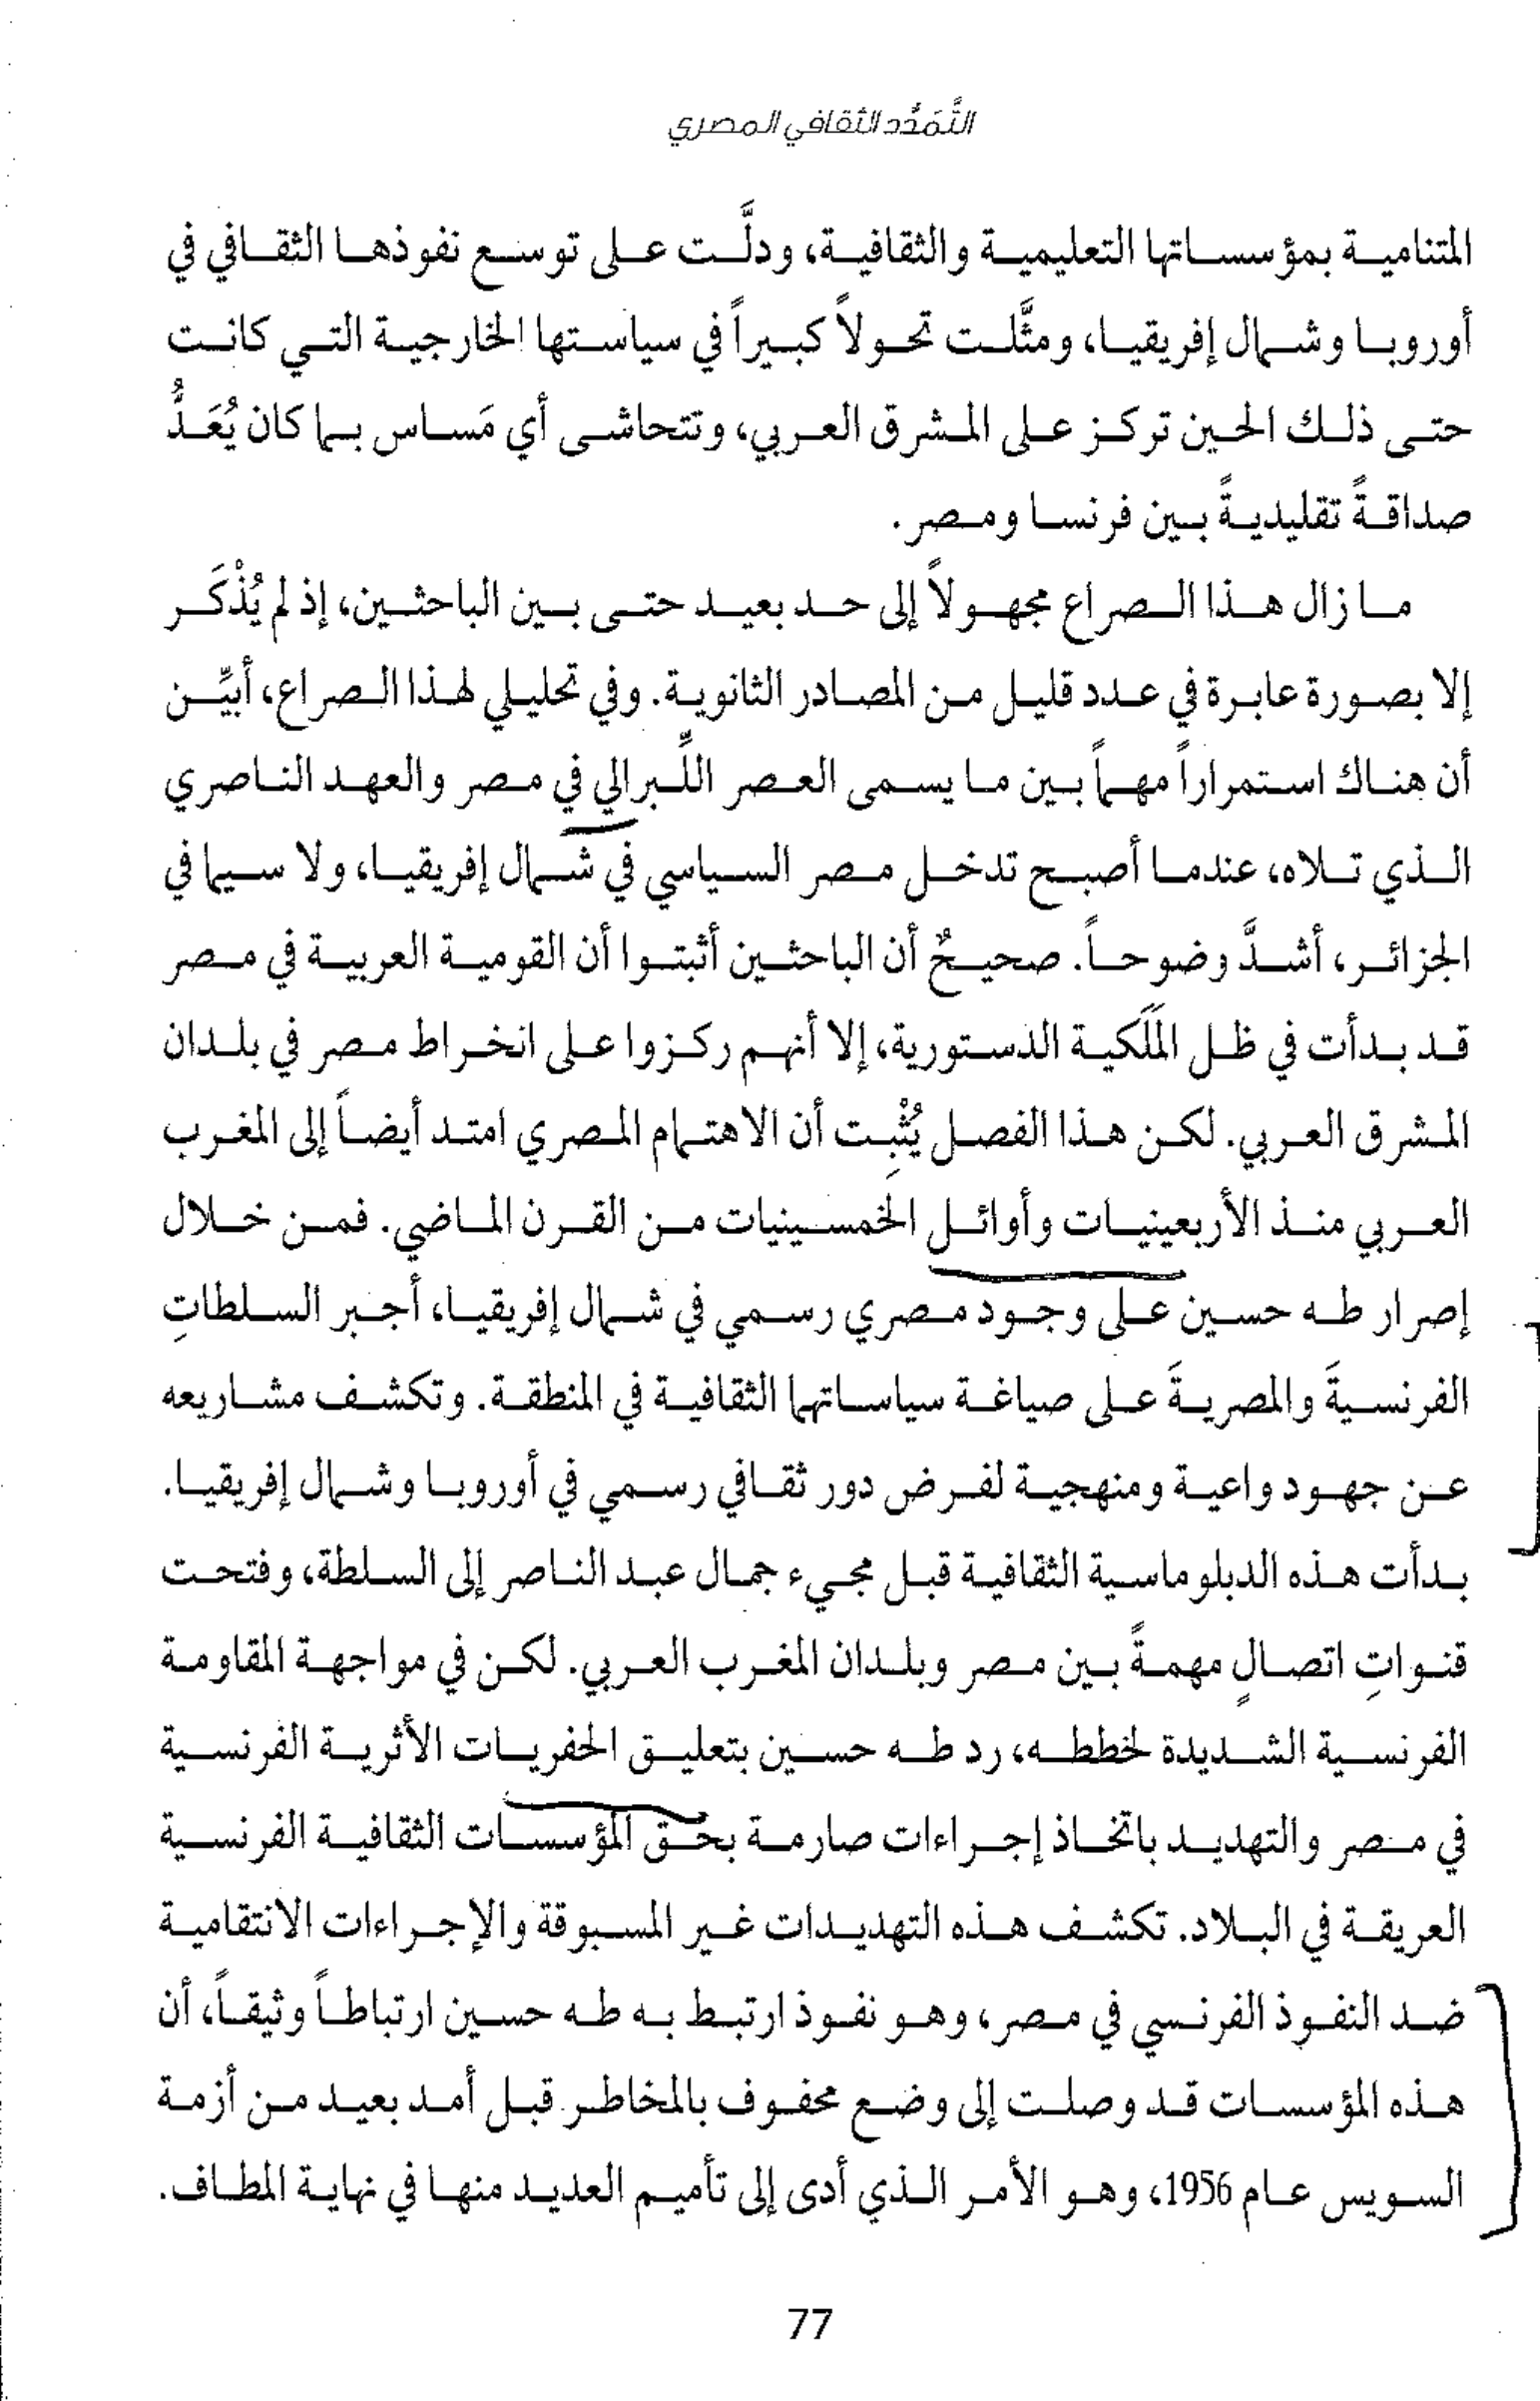 التَّمَدُّد الثقافي المصري
المتنامية بمؤسساتها التعليمية والثقافية، ودلَّت على توسع نفوذها الثقافي في
أوروبا وشمال إفريقيا، ومثَّلت تحولاً كبيراً في سياستها الخارجية التي كانت
حتى ذلك الحين تركز على المشرق العربي، وتتحاشى أي مَساس بما كان يُعَدُّ
صداقةً تقليديةً بين فرنسا ومصر.
ما زال هذا الصراع مجهولاً إلى حد بعيد حتى بين الباحثين، إذ لم يُذْكَر
إلا بصورة عابرة في عدد قليل من المصادر الثانوية. وفي تحليلي لهذا الصراع، أبيِّن
أن هناك استمراراً مهماً بين ما يسمى العصر اللِّبرالي في مصر والعهد الناصري
الذي تلاه، عندما أصبح تدخل مصر السياسي في شمال إفريقيا، ولا سيما في
الجزائر، أشدَّ وضوحاً. صحيحٌ أن الباحثين أثبتوا أن القومية العربية في مصر
قد بدأت في ظل المَلَكية الدستورية، إلا أنهم ركزوا على انخراط مصر في بلدان
المشرق العربي. لكن هذا الفصل يُثْبِت أن الاهتمام المصري امتد أيضاً إلى المغرب
العربي منذ الأربعينيات وأوائل الخمسينيات من القرن الماضي. فمن خلال
إصرار طه حسين على وجود مصري رسمي في شمال إفريقيا، أجبر السلطاتِ
الفرنسيةَ والمصريةَ على صياغة سياساتهما الثقافية في المنطقة. وتكشف مشاريعه
عن جهود واعية ومنهجية لفرض دور ثقافي رسمي في أوروبا وشمال إفريقيا.
بدأت هذه الدبلوماسية الثقافية قبل مجيء جمال عبد الناصر إلى السلطة، وفتحت
قنواتِ اتصالٍ مهمةً بين مصر وبلدان المغرب العربي. لكن في مواجهة المقاومة
الفرنسية الشديدة لخططه، رد طه حسين بتعليق الحفريات الأثرية الفرنسية
في مصر والتهديد باتخاذ إجراءات صارمة بحق المؤسسات الثقافية الفرنسية
العريقة في البلاد. تكشف هذه التهديدات غير المسبوقة والإجراءات الانتقامية
ضد النفوذ الفرنسي في مصر، وهو نفوذ ارتبط به طه حسين ارتباطاً وثيقاً، أن
هذه المؤسسات قد وصلت إلى وضع محفوف بالمخاطر قبل أمد بعيد من أزمة
السويس عام 1956، وهو الأمر الذي أدى إلى تأميم العديد منها في نهاية المطاف.
77